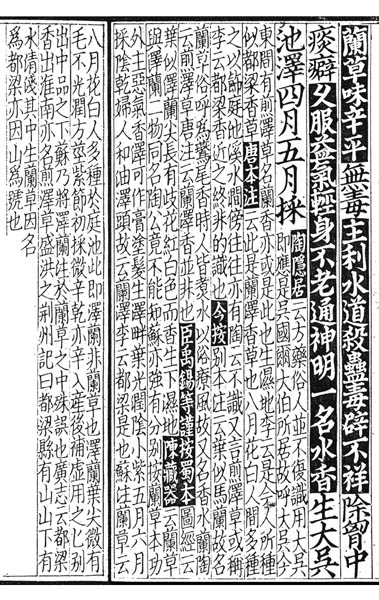 蘭草味辛平無毒主利水道殺蠱毒辟不祥除胷中
痰癖久服益氣輕身不老通神明一名水香生大吳
池澤四月五月採
陶隱居云方藥俗人並不復識用大吳
即應是吳國爾太伯所居故呼大吳今
東間有煎澤草名蘭香亦或是此也生濕地李云是今人所種
似都梁香草唐本注云此是蘭澤香草也八月花白人間多種
之以飾庭池溪水澗傍往往亦有陶云不識又言煎澤草或稱
李云都梁香近之終非的識也今按別本注云葉似馬蘭故名
蘭草俗呼為鷰尾香時人皆煮水以浴療風故又名香水蘭陶
云煎澤草唐注云蘭澤香並非也臣禹錫等謹按蜀本圖經云
葉似澤蘭尖長有歧花紅白色而香生下濕地陳藏器云蘭草
與澤蘭二物同名陶公竟不能知蘇亦強有分別按蘭草本功
外主惡氣香澤可作膏塗髮生澤畔葉光潤陰小紫五月六月
採陰乾婦人和油澤頭故云蘭澤李云都梁是也蘇注蘭草云
八月花白人多種於庭池此即澤蘭非蘭草也澤蘭葉尖微有
毛不光潤方莖紫節初採微辛乾亦辛入產後補虛用之已別
出中品之下蘇乃將澤蘭注於蘭草之中殊誤也廣志云都梁
香出淮南亦名煎澤草盛洪之荊州記曰都梁縣有山山下有
水清淺其中生蘭草因名
為都梁亦因山為號也